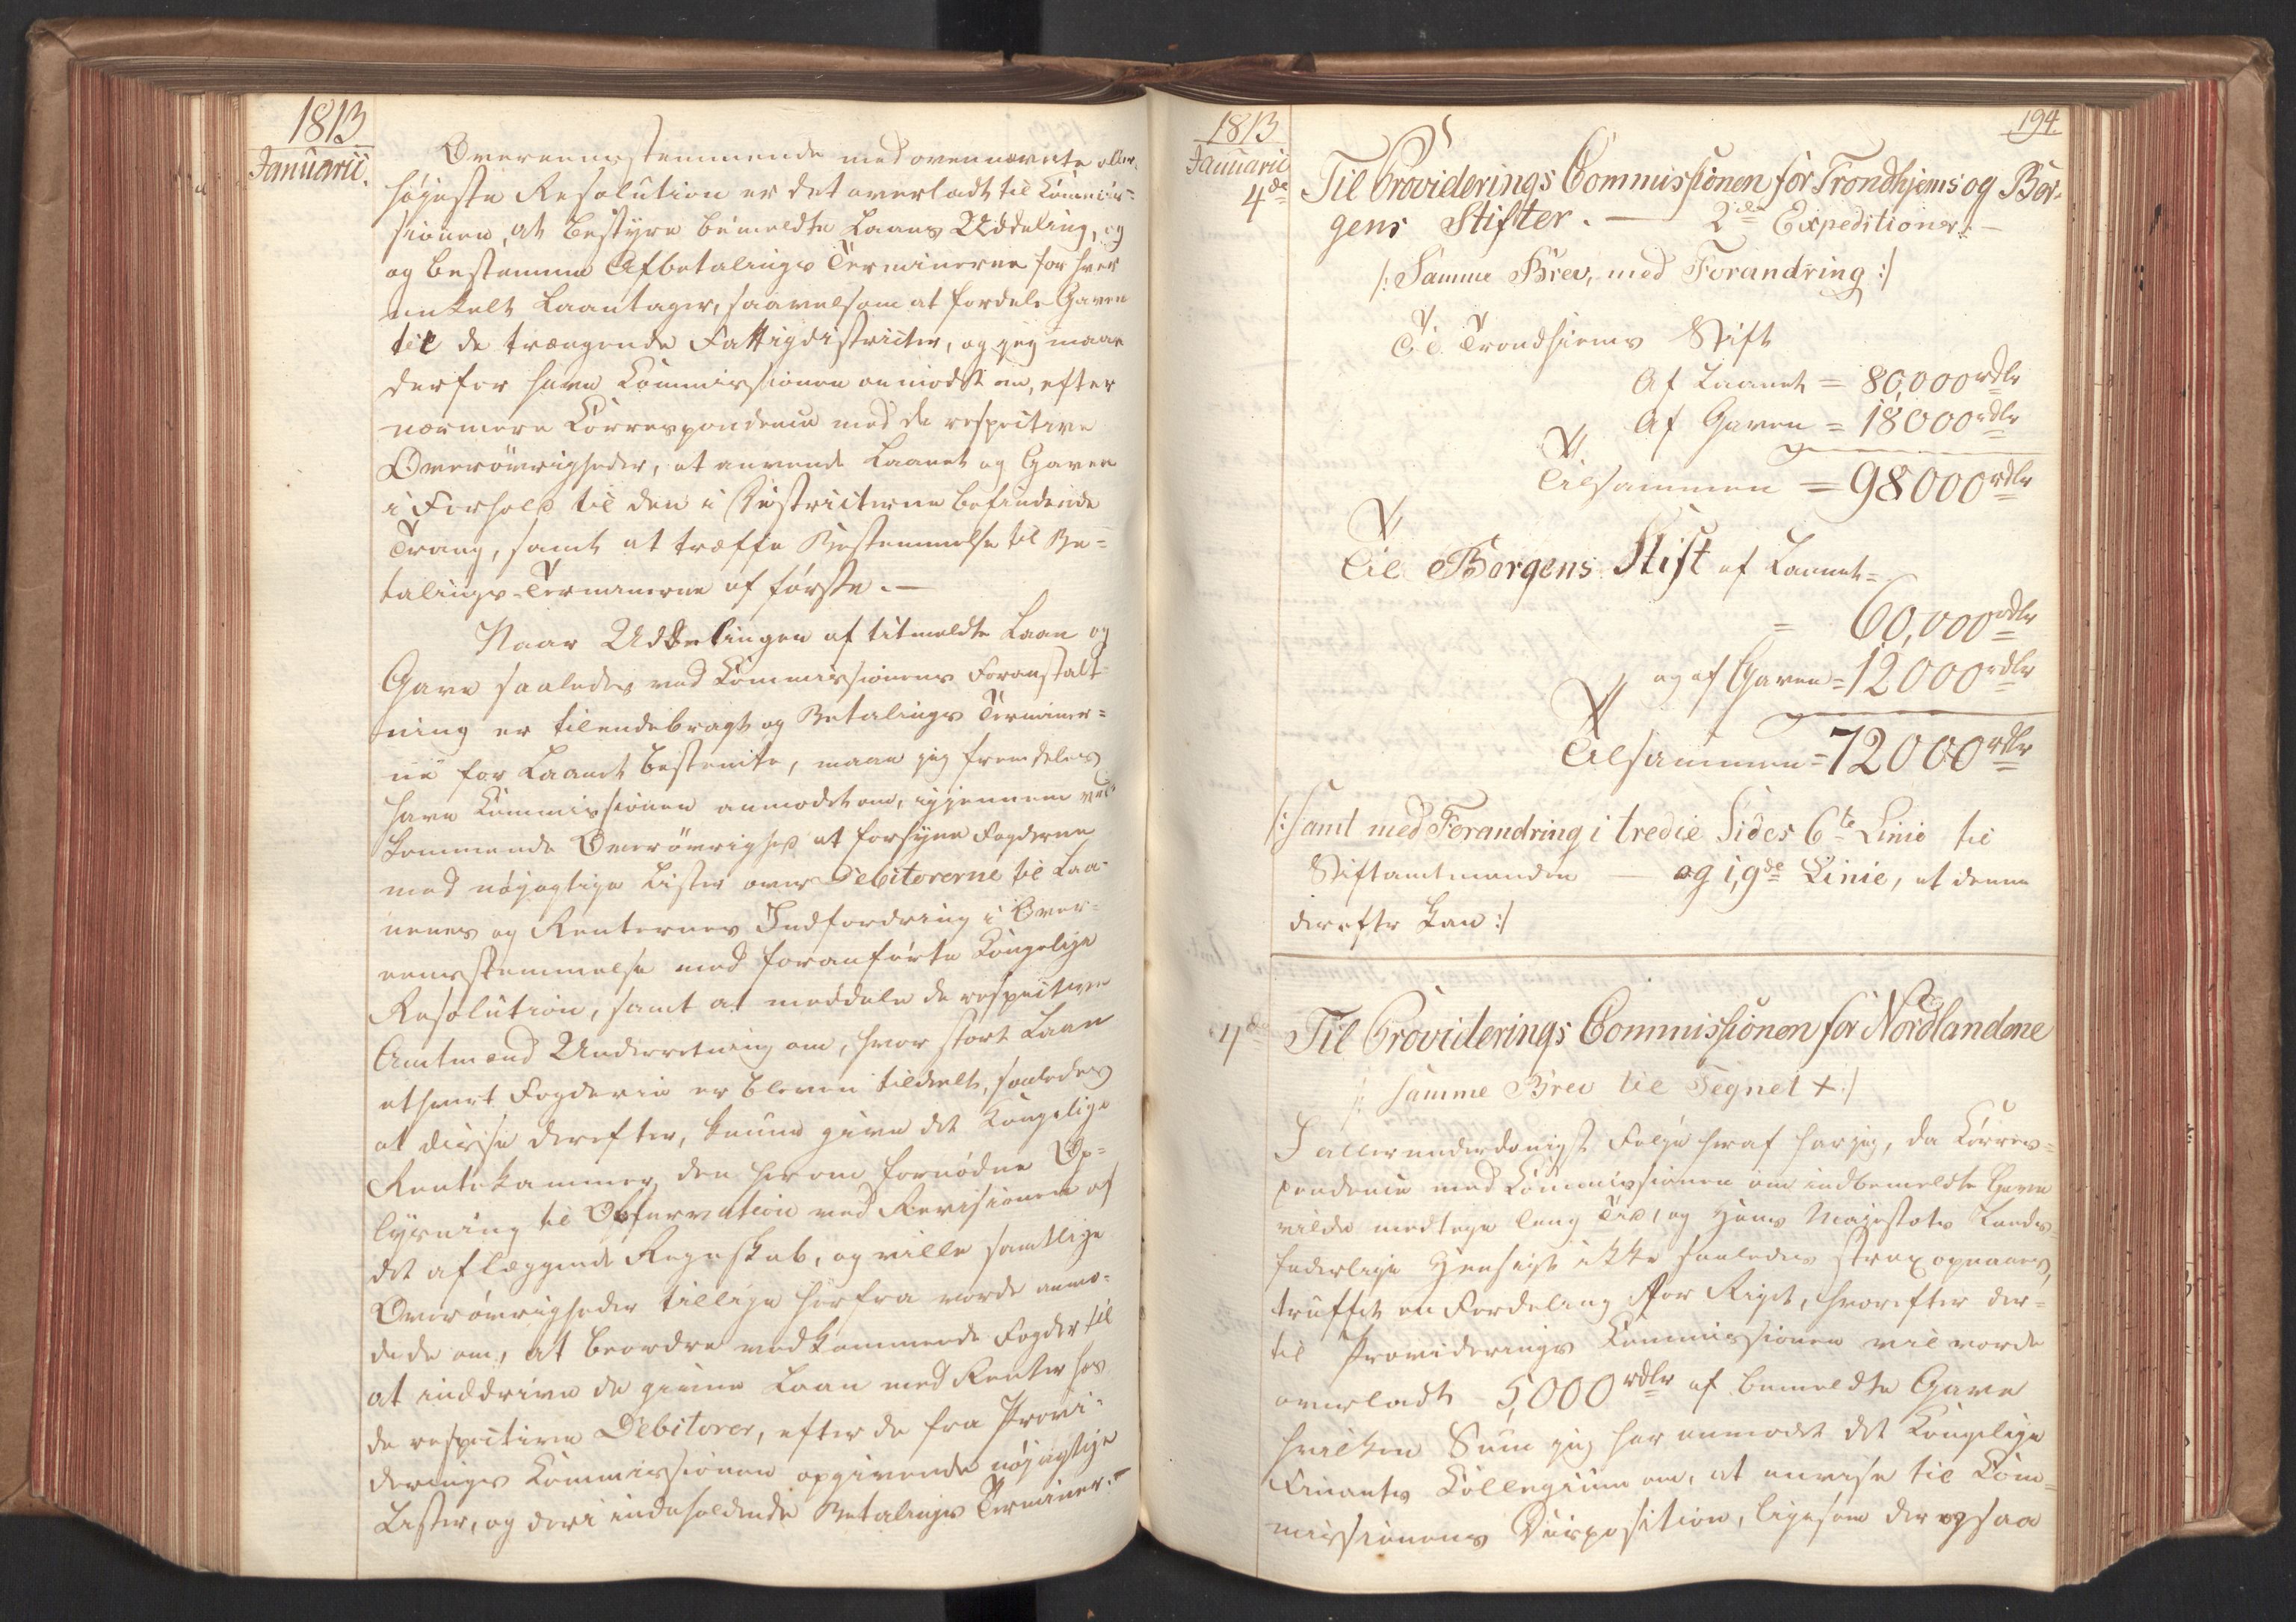 1813
Januarii.
Overeensstemmende med ovennævnte aller-
højeste Resolution er det overladt til Kommis-
sionen, at bestyre bemeldte Laans Uddeling, og
og bestemme Afbetalings Terminerne for hver
enkelt Laantager, saavelsom at fordele Gaven
til de trængende Fattigdistricter, og jeg maae
derfor have Kommissionen anmodet om, efter
nærmere Korrespondence med de respective
Overøvrigheder, at anvende Laanet og Gaven
i Forhold til den i Districterne befindende
Trang, samt at træffe Bestemmelse til Be-
talings-Terminerne af første. —
Naar Uddelingen af titmeldte Laan og
Gave saaledes ved Kommissionens Foranstalt-
ning er tilendebragt og Betalings Terminer-
ne for Laanet bestemte, maae jeg fremdeles
have Kommissionen anmodet om, igjennem ved-
kommende Overøvrighed at forsyne Fogderne
med nøjagtige Lister over Debitorerne til Laa-
nenes og Renternes Indfordring i Over-
eensstemmelse med foranførte Kongelige
Resolution, samt at meddele de respective
Amtmænd Underretning om, hvor stort Laan
ethvert Fogderie er bleven tildeelt, saaledes
at disse derefter, kunne give det Kongelige
Rentekammer den herom fornødne Op-
lysning til Observation ved Revisionen af
det aflæggende Regnskab, og ville samtlige
Overøvrigheder tillige herfra vorde anmo-
dede om, at beordre vedkommende Fogder til
at inddrive de givne Laan med Renter hos
de respective Debitorer, efter de fra Provi-
derings Kommissionen opgivende nøjagtige
Lister, og deri indeholdende Betalings Terminer. —
1813
Januarii
194.
4de
Til Providerings Commissionen for Trondhjems og Ber-
gens Stifter. — 2de Expeditioner. —
/: Samme Brev, med Forandring :/
Til Trondhiems Stift
Af Laanet = 80,000 rdlr
Af Gaven = 18000 rdlr
Tilsammen = 98000 rdlr
Til Bergens Stift af Laanet =
= 60,000 rdlr
og af Gaven = 12000 rdlr
Tilsammen = 72000 rdlr
/: samt med Forandring i tredie Sides 6te Linie til
Stiftamtmanden — og i, 9de Linie, at denne
derefter kan :/
Til Providerings Commissionen for Nordlandene
/: Samme Brev til Tegnet + :/
I allerunderdanigst Følge heraf har jeg, da Korres-
pondence med Kommissionen om indbemeldte Gave
vilde medtage lang Tid, og Hans Majestæts Lands-
faderlige Hensigt ikke saaledes strax opnaaes,
truffet en Fordeling for Riget, hvorefter der-
til Providerings Kommissionen vil vorde
overladt 5,000 rdlr af bemeldte Gave
hvilken Sum jeg har anmodet det Kongelige
Finants Kollegium om, at anvise til Kom-
missionens Disposition, ligesom der ogsaa